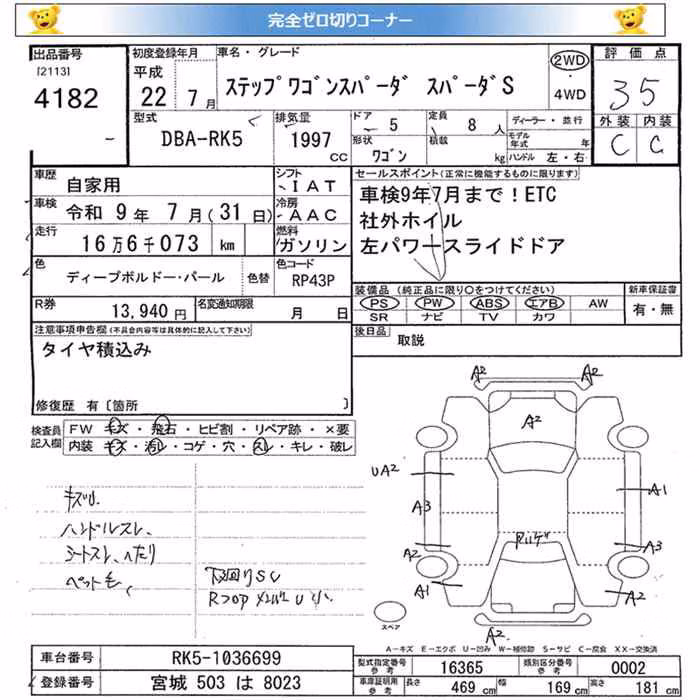 完全ゼロ切りコーナー
出品番号
[2113]
4182
初度登録年月
平成
22年 7月
車名・グレード
ステップワゴンスパーダ スパーダS
2WD
・
4WD
評価点
35
外装 内装
C C
型式
DBA-RK5
排気量
1997
CC
ドア
5
定員
8 人
形状
ワゴン
積載
kg
ディーラー・並行
モデル年式 年
ハンドル 左・右
車歴
自家用
シフト
IAT
車検
令和 9年 7月(31日)
冷房
AAC
走行
16万6千073 km
燃料
ガソリン
色
ディープボルドー・パール
色替
色コード
RP43P
R券
13,940円
名変通知期限
月 日
セールスポイント(正常に機能するものに限ります)
車検9年7月まで!ETC
社外ホイル
左パワースライドドア
装備品 (純正品に限り○をつけてください)
PS PW ABS エアB AW
SR ナビ TV カワ
新車保証書
有・無
後日品
取説
注意事項申告欄(不具合内容等は具体的に記入して下さい)
タイヤ積込み
修復歴 有〔箇所 〕
検査員記入欄
FW キズ・飛石・ヒビ割・リペア跡・×要
内装 キズ・汚レ・コゲ・穴・スレ・キレ・破レ
キズ小
ハンドルスレ、
シートスレ、ヘたり
ペット毛
下廻りSC
RフロアメンバーU小、
A2 A2
A2
UA2
A3
A1
A2
A3
A1
A2
A2
スペア
A-キズ E-エクボ U-凹み W-補修跡 S-サビ C-腐食 XX-交換済
車台番号
RK5-1036699
登録番号
宮城 503 は 8023
型式指定番号
参考
16365
類別区分番号
参考
0002
車庫証明用
参考
長さ 469 cm
幅 169 cm
高さ 181 cm